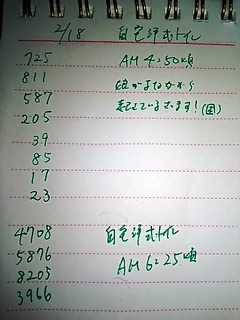 2/18 自宅洋式トイレ
725 AM 4:50頃
811
587 起きています!(困)
205
39
85
17
23
4708 自宅洋式トイレ
5876 AM 6:25頃
8205
3966